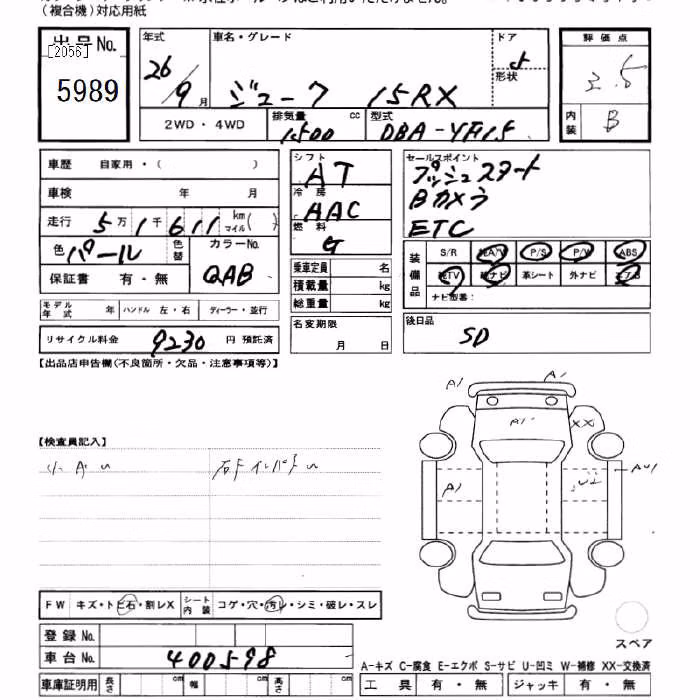 (複合機)対応用紙
出品No.
[2056]
5989
年式 車名・グレード ドア 形状
26/9月 ジューク 15RX 5
2WD・4WD 排気量 1500 cc 型式 DBA-YF15
評価点 3.5
内装 B
車歴 自家用・( )
車検 年 月
走行 5万1千611 km マイル( )
色 パール 色替 カラーNo. QAB
保証書 有・無
モデル年式 年 ハンドル 左・右 ディーラー・並行
リサイクル料金 9230 円 預託済
シフト AT
冷房 AAC
燃料 G
乗車定員 名
積載量 kg
総重量 kg
名変期限 月 日
セールスポイント
プッシュスタート
Bカメラ
ETC
装備品 S/R 純A/W P/S P/W ABS
純TV 純ナビ 革シート 外ナビ エアB
ナビ型番:
後日品
SD
【出品店申告欄(不良箇所・欠品・注意事項等)】
【検査員記入】
小A 石ドインパネ
A1 A1
A1 XX
A1 U2 AU1
FW キズ・トビ石・割レX シート内装 コゲ・穴・汚レ・シミ・破レ・スレ
登録No.
車台No. 400598
スペア
A-キズ C-腐食 E-エクボ S-サビ U-凹ミ W-補修 XX-交換済
車庫証明用 長さ cm 幅 cm 高さ cm 工具 有・無 ジャッキ 有・無